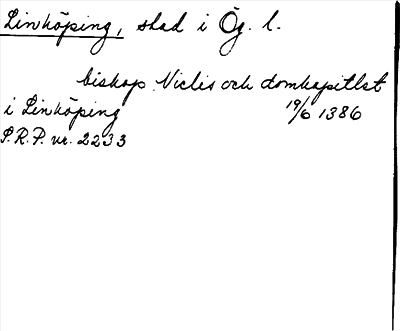 Linköping, stad i Ög. l.
biskop Niclis och domkapitlet
i Linköping 19/6 1386
S.R.P. nr. 2233